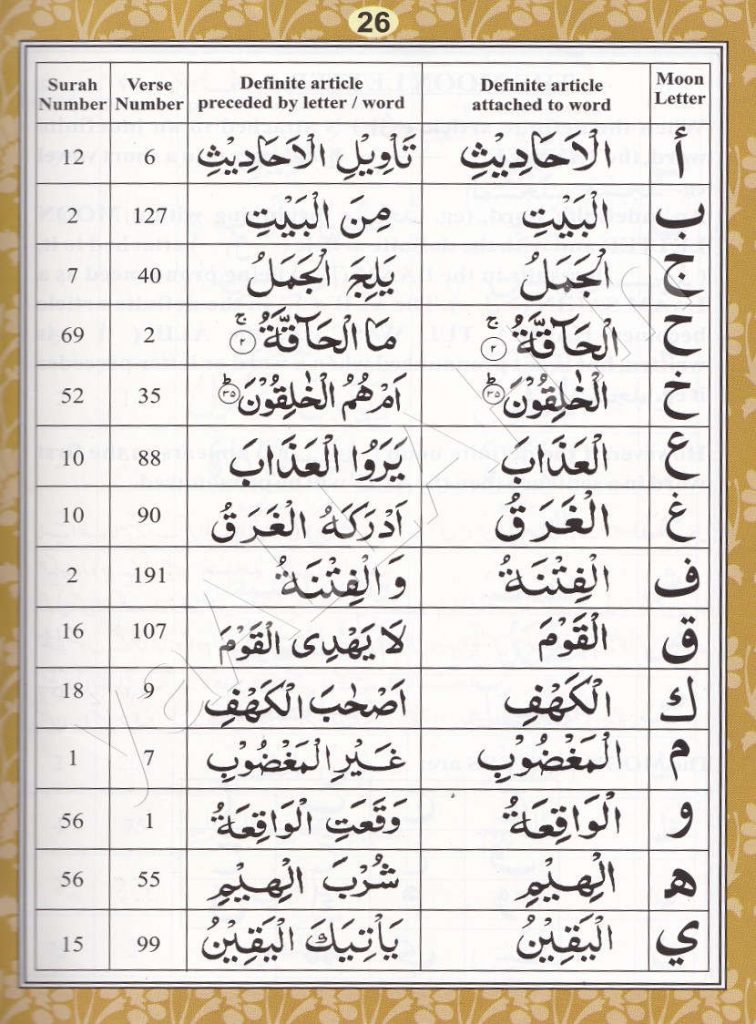 26
Surah Number Verse Number Definite article preceded by letter / word Definite article attached to word Moon Letter
12 6 تَاْوِيْلِ الْاَحَادِيْثِ الْاَحَادِيْثِ أ
2 127 مِنَ الْبَيْتِ الْبَيْتِ ب
7 40 يَلِجَ الْجَمَلُ الْجَمَلُ ج
69 2 مَا الْحَآقَّةُ ۚ ۲ الْحَآقَّةُ ۚ ۲ ح
52 35 اَمْ هُمُ الْخٰلِقُوْنَ ؕ ۳۵ الْخٰلِقُوْنَ ؕ ۳۵ خ
10 88 يَرَوُا الْعَذَابَ الْعَذَابَ ع
10 90 اَدْرَكَهُ الْغَرَقُ الْغَرَقُ غ
2 191 وَالْفِتْنَةُ الْفِتْنَةُ ف
16 107 لَا يَهْدِى الْقَوْمَ الْقَوْمَ ق
18 9 اَصْحٰبَ الْكَهْفِ الْكَهْفِ ك
1 7 غَيْرِ الْمَغْضُوْبِ الْمَغْضُوْبِ م
56 1 وَقَعَتِ الْوَاقِعَةُ الْوَاقِعَةُ و
56 55 شُرْبَ الْهِيْمِ الْهِيْمِ ه
15 99 يَاْتِيَكَ الْيَقِيْنُ الْيَقِيْنُ ي